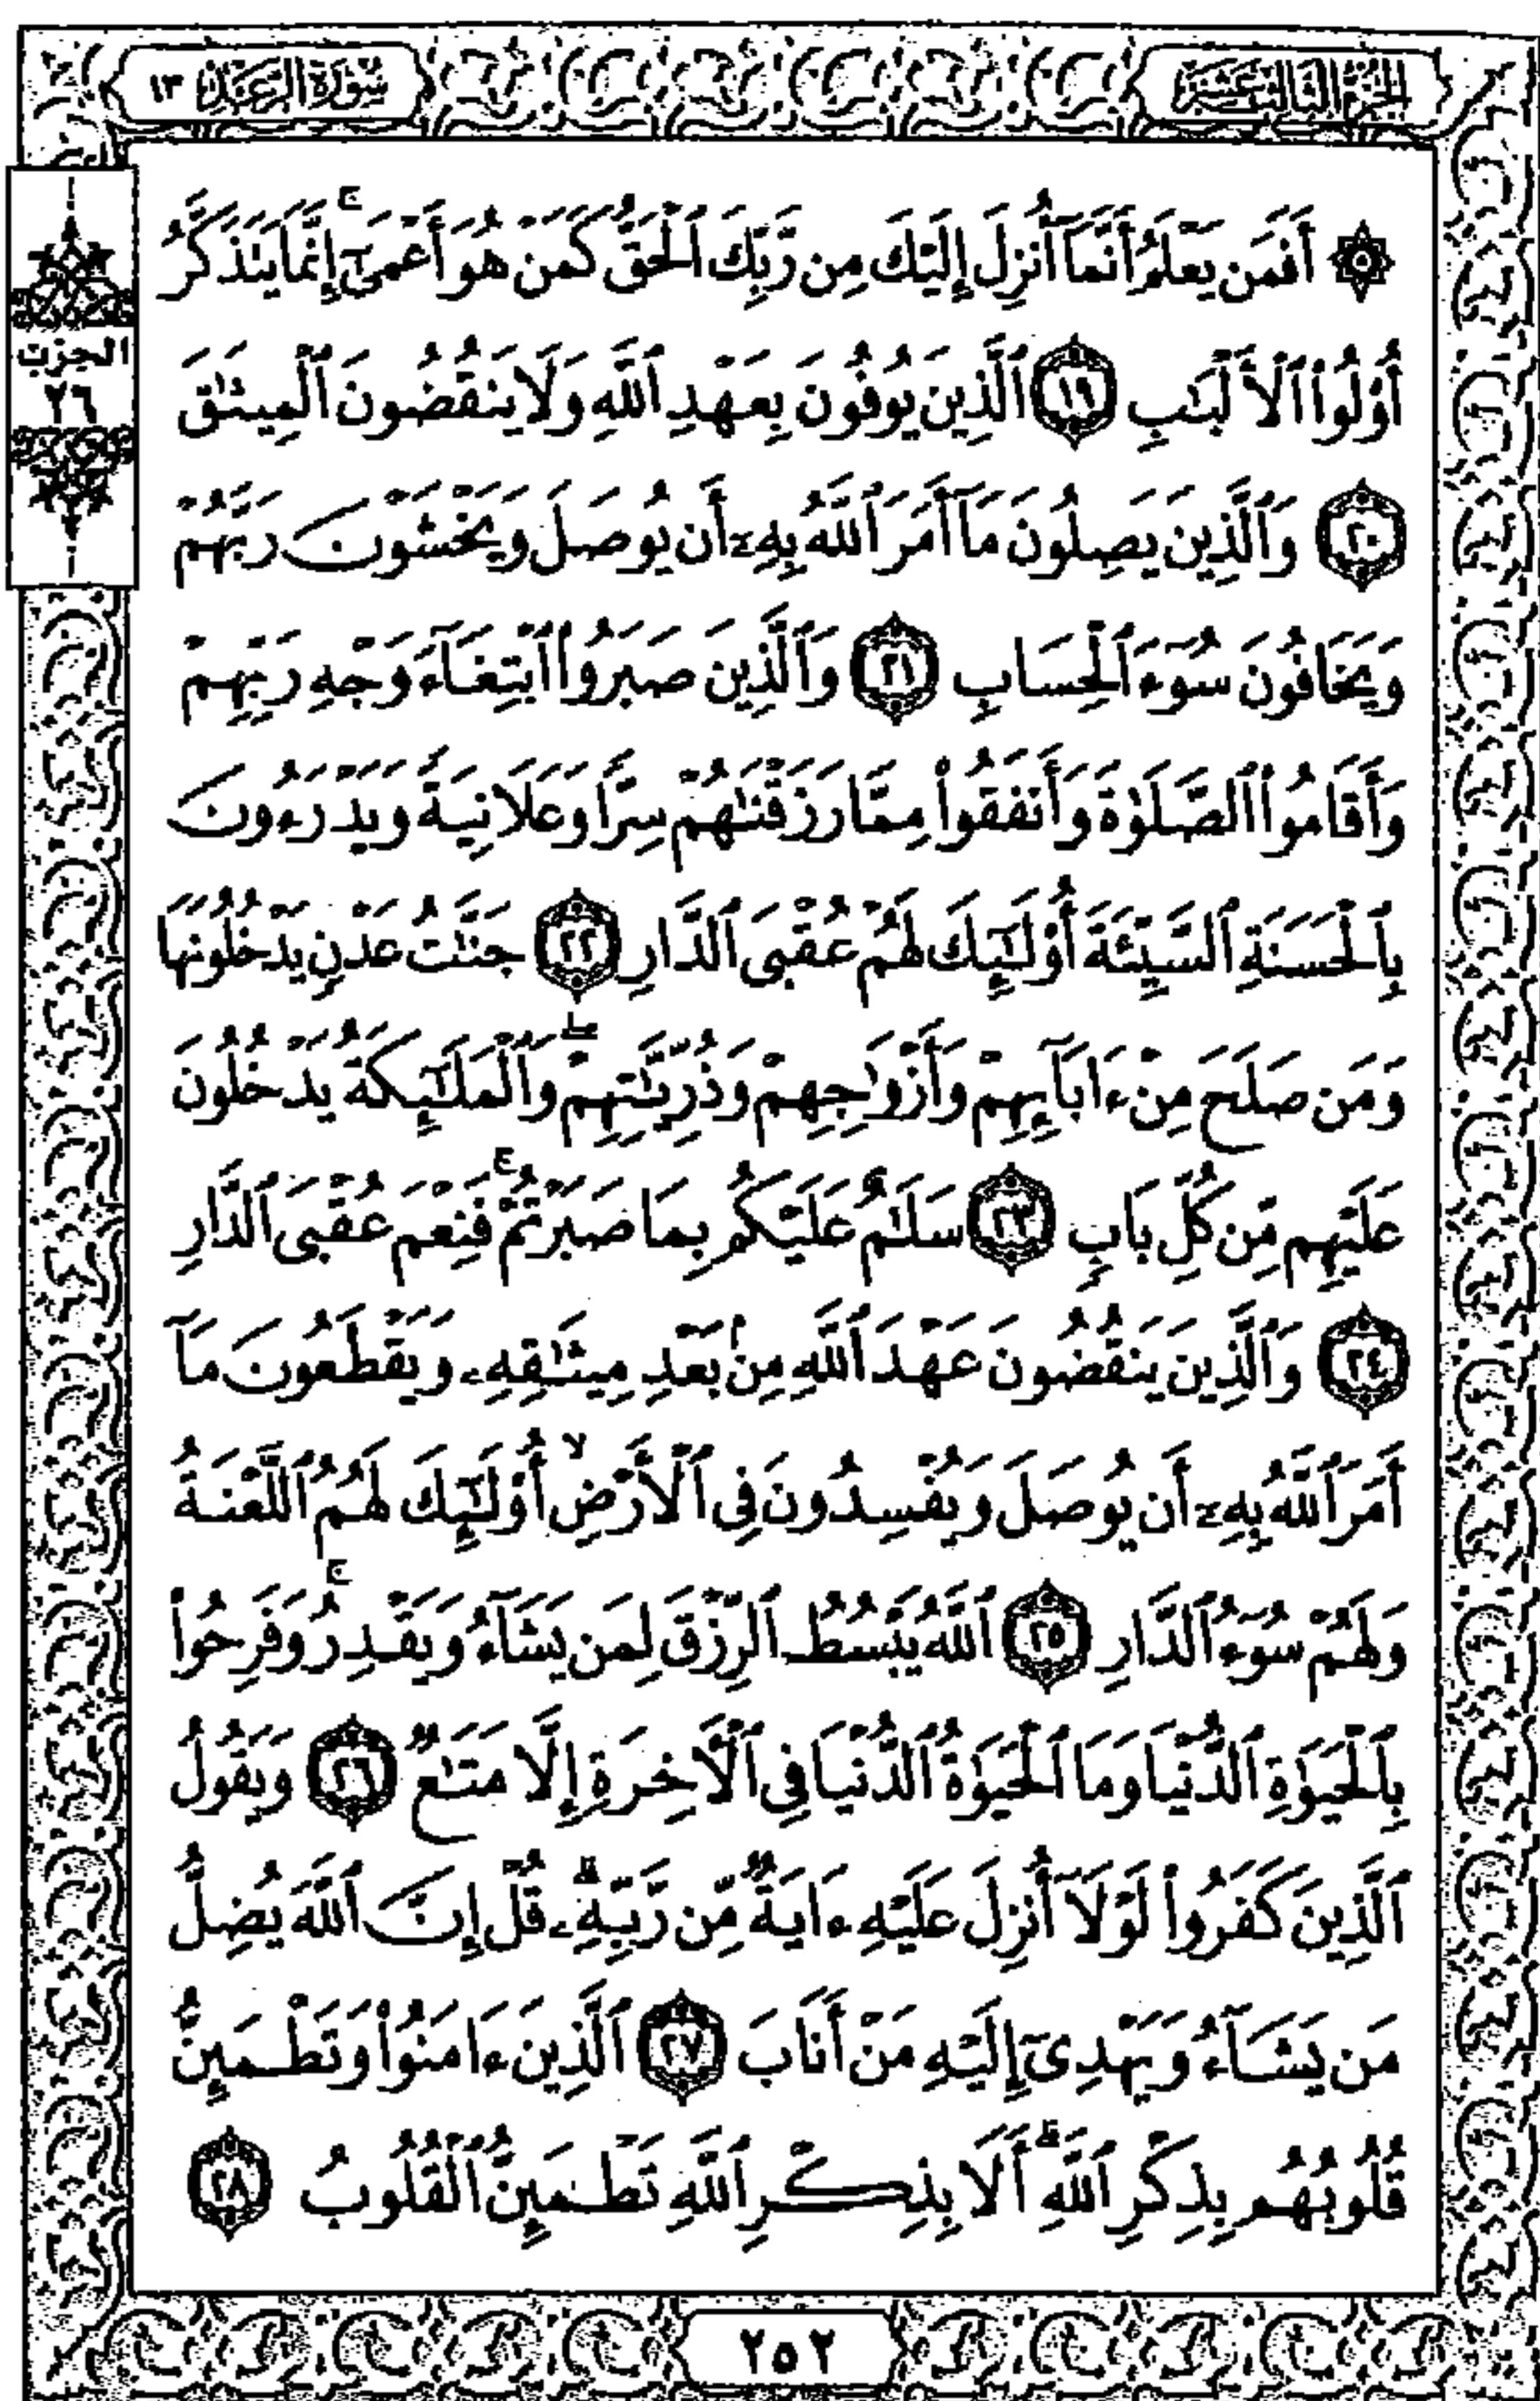 الجزء الثالث عشر
سورة الرعد ١٣
الحزب
٢٦
۞ أَفَمَن يَعْلَمُ أَنَّمَآ أُنزِلَ إِلَيْكَ مِن رَّبِّكَ ٱلْحَقُّ كَمَنْ هُوَ أَعْمَىٰٓ ۚ إِنَّمَا يَتَذَكَّرُ
أُو۟لُوا۟ ٱلْأَلْبَـٰبِ ١٩ ٱلَّذِينَ يُوفُونَ بِعَهْدِ ٱللَّهِ وَلَا يَنقُضُونَ ٱلْمِيثَـٰقَ
٢٠ وَٱلَّذِينَ يَصِلُونَ مَآ أَمَرَ ٱللَّهُ بِهِۦٓ أَن يُوصَلَ وَيَخْشَوْنَ رَبَّهُمْ
وَيَخَافُونَ سُوٓءَ ٱلْحِسَابِ ٢١ وَٱلَّذِينَ صَبَرُوا۟ ٱبْتِغَآءَ وَجْهِ رَبِّهِمْ
وَأَقَامُوا۟ ٱلصَّلَوٰةَ وَأَنفَقُوا۟ مِمَّا رَزَقْنَـٰهُمْ سِرًّا وَعَلَانِيَةً وَيَدْرَءُونَ
بِٱلْحَسَنَةِ ٱلسَّيِّئَةَ أُو۟لَـٰٓئِكَ لَهُمْ عُقْبَى ٱلدَّارِ ٢٢ جَنَّـٰتُ عَدْنٍ يَدْخُلُونَهَا
وَمَن صَلَحَ مِنْ ءَابَآئِهِمْ وَأَزْوَٰجِهِمْ وَذُرِّيَّـٰتِهِمْ ۖ وَٱلْمَلَـٰٓئِكَةُ يَدْخُلُونَ
عَلَيْهِم مِّن كُلِّ بَابٍ ٢٣ سَلَـٰمٌ عَلَيْكُم بِمَا صَبَرْتُمْ ۚ فَنِعْمَ عُقْبَى ٱلدَّارِ
٢٤ وَٱلَّذِينَ يَنقُضُونَ عَهْدَ ٱللَّهِ مِنۢ بَعْدِ مِيثَـٰقِهِۦ وَيَقْطَعُونَ مَآ
أَمَرَ ٱللَّهُ بِهِۦٓ أَن يُوصَلَ وَيُفْسِدُونَ فِى ٱلْأَرْضِ ۙ أُو۟لَـٰٓئِكَ لَهُمُ ٱللَّعْنَةُ
وَلَهُمْ سُوٓءُ ٱلدَّارِ ٢٥ ٱللَّهُ يَبْسُطُ ٱلرِّزْقَ لِمَن يَشَآءُ وَيَقْدِرُ ۚ وَفَرِحُوا۟
بِٱلْحَيَوٰةِ ٱلدُّنْيَا وَمَا ٱلْحَيَوٰةُ ٱلدُّنْيَا فِى ٱلْـَٔاخِرَةِ إِلَّا مَتَـٰعٌ ٢٦ وَيَقُولُ
ٱلَّذِينَ كَفَرُوا۟ لَوْلَآ أُنزِلَ عَلَيْهِ ءَايَةٌ مِّن رَّبِّهِۦ ۗ قُلْ إِنَّ ٱللَّهَ يُضِلُّ
مَن يَشَآءُ وَيَهْدِىٓ إِلَيْهِ مَنْ أَنَابَ ٢٧ ٱلَّذِينَ ءَامَنُوا۟ وَتَطْمَئِنُّ
قُلُوبُهُم بِذِكْرِ ٱللَّهِ ۗ أَلَا بِذِكْرِ ٱللَّهِ تَطْمَئِنُّ ٱلْقُلُوبُ ٢٨
٢٥٢